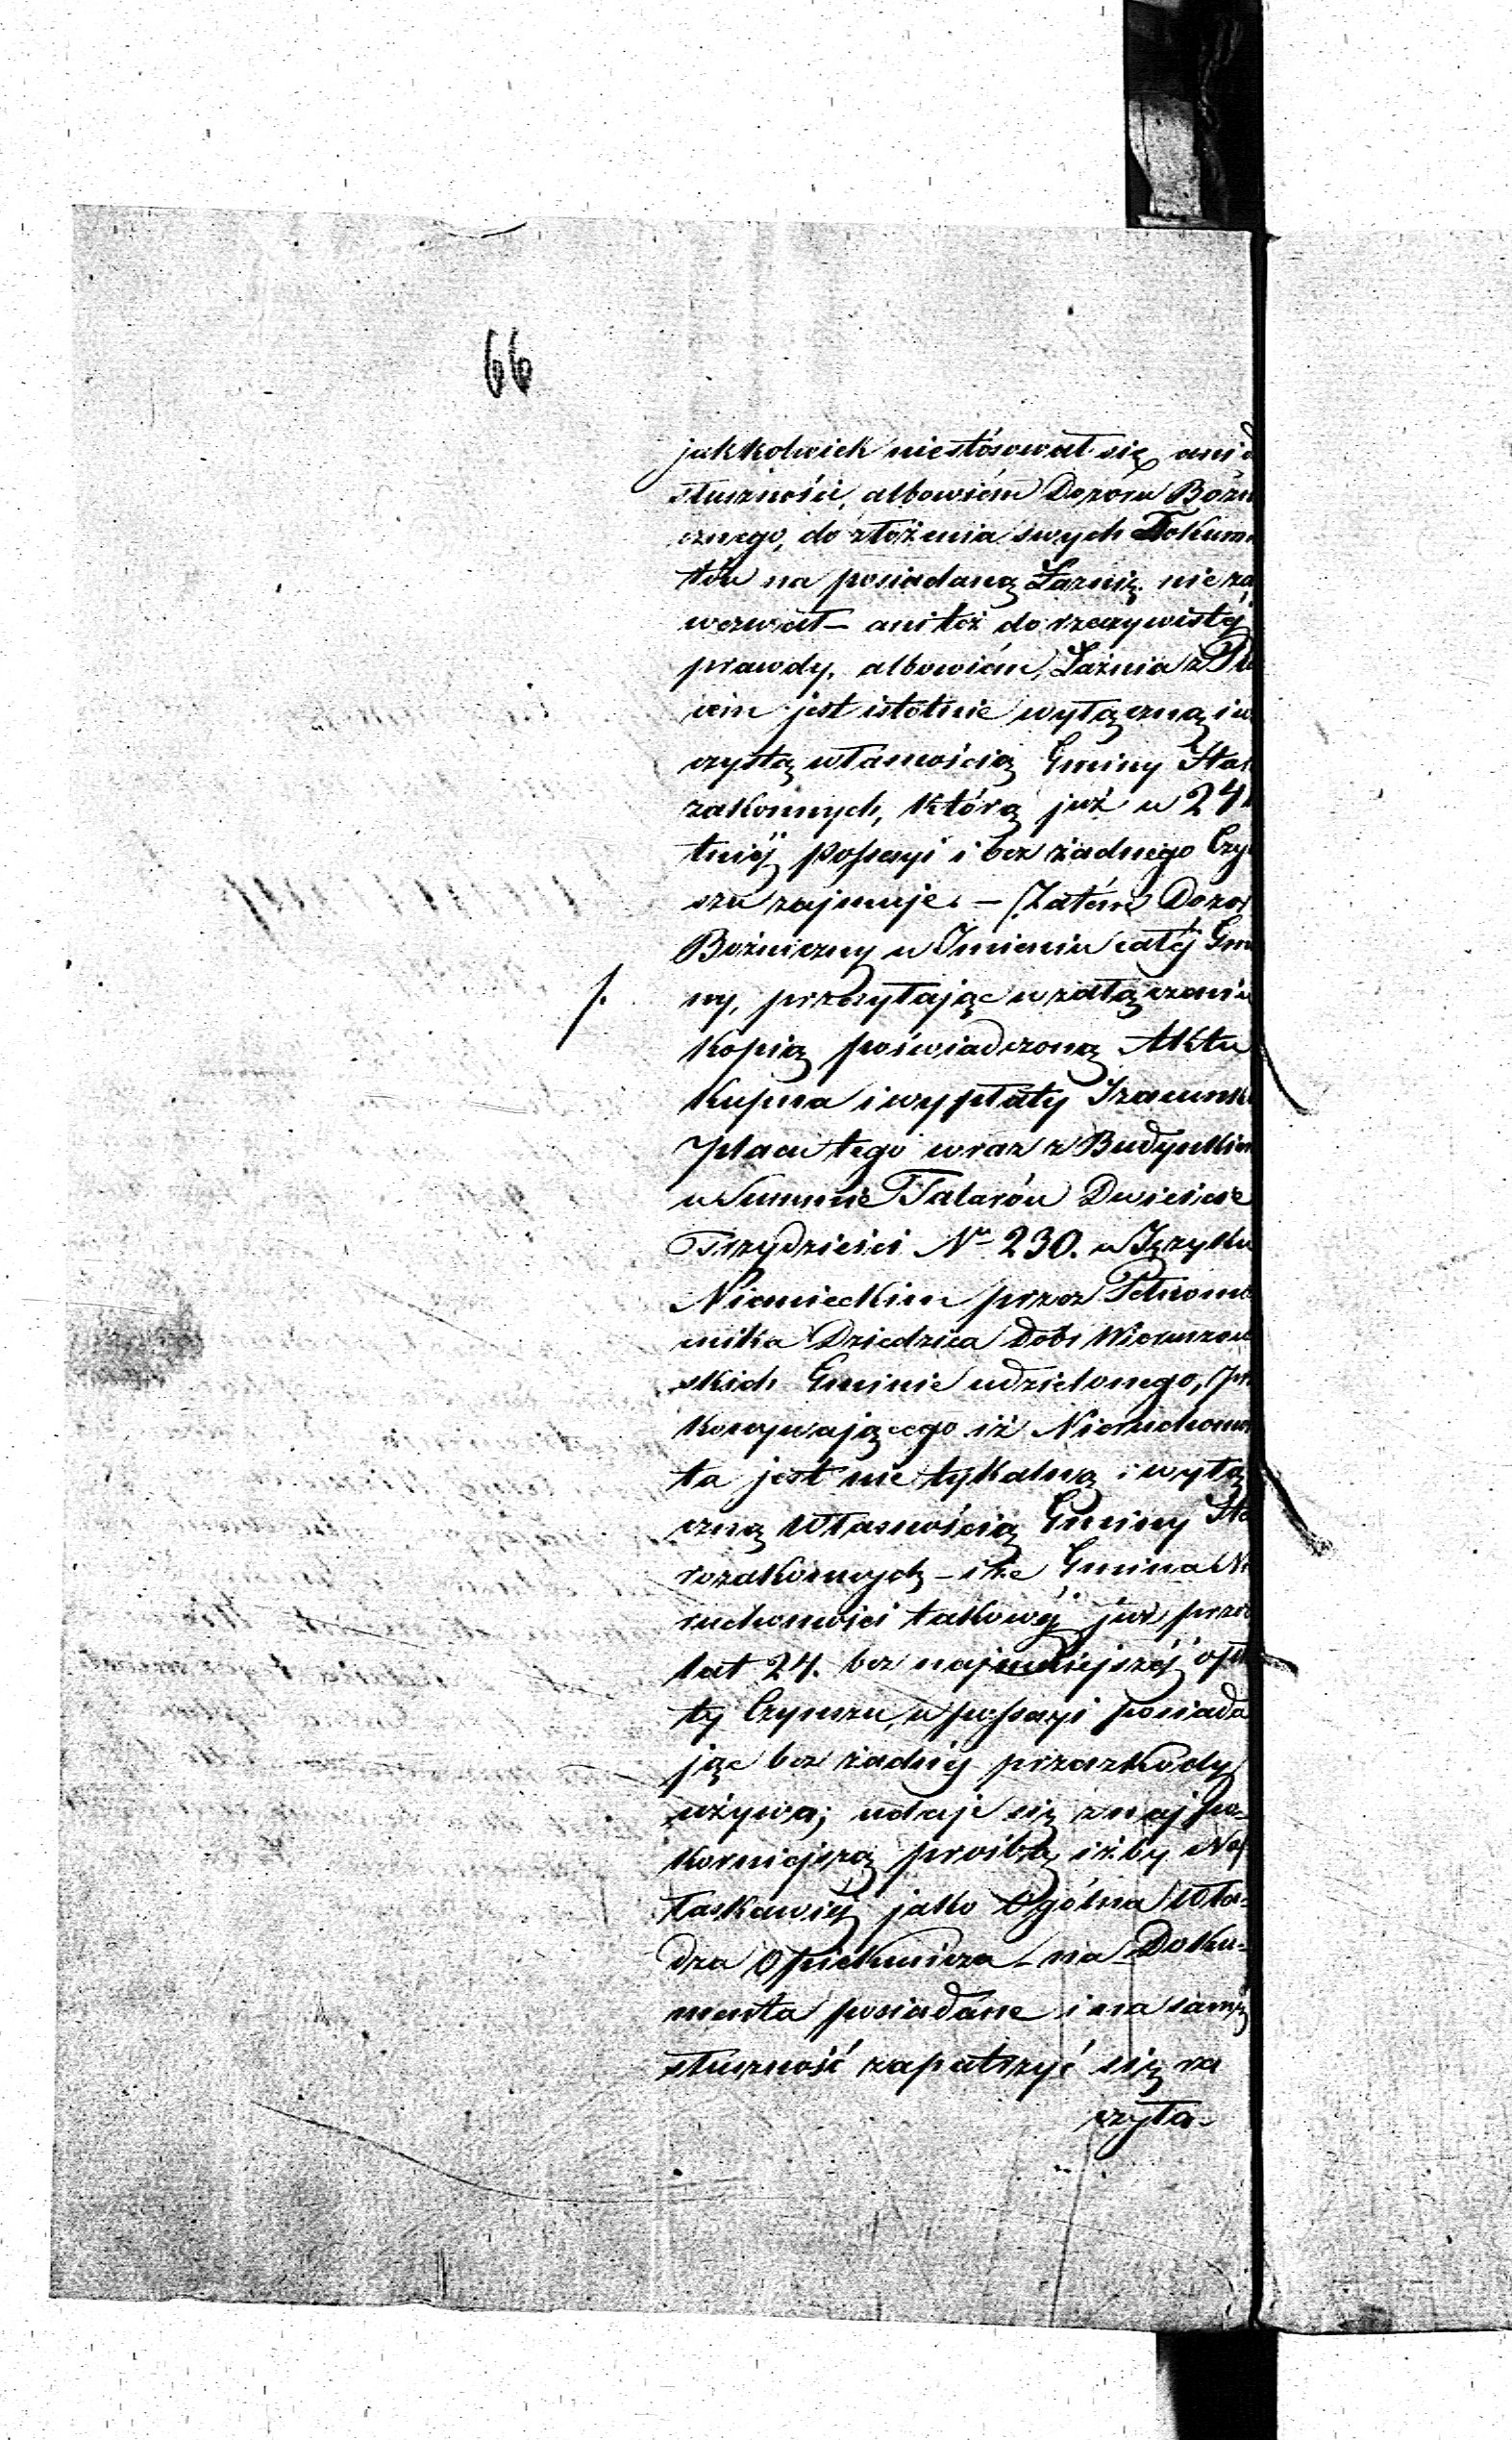 66
jakkolwiek niestósował się ani d
słuszności, albowiém Dozóru Bóżn
cznego, do złożenia swych Dokume
tów na posiadaną Łaźnię nieza
wezwał – ani też do rzeczywistéj
prawdy, albowiém, Łaźnia z Pla
cem jest istotnie wyłączną i w
czystą własnością Gminy Star
zakonnych, którą już w 24l
tniéj possesyi i bez żadnego Czyn
szu zajmuje. – Zatém Dozor
Bożniczny w Imieniu całéj Gmi
1. ny, przesyłając w załączeniu
kopią poświadczoną Aktu
Kupna i wypłaty Szacunku
placu tego wraz z Budynkiem
w Summie Talarów Dwieście
Trzydzieści No 230. w Języku
Niemieckim przez Pełnomo
cnika Dziedzica Dóbr Wieruszow
skich Gminie udzielonego, prze
konywającego iż Nieruchomoś
ta jest nie tykalną i wyłą
czną Własnością Gminy Sta
rozakonnych – i że Gmina Nie
ruchomości takowéj już przez
lat 24. bez najmniejszéj opła
ty Czynszu, w possesyi posiada
jąc bez żadnéj przeszkody
używa; udaje się z naj po-
korniejszą prośbą iżby Naj
łaskawiéj jako Ogólna Wła-
dza Opiekuńcza – na Doku-
menta posiadane i na samą
słuszność zapatrzyć się ra
czyła-